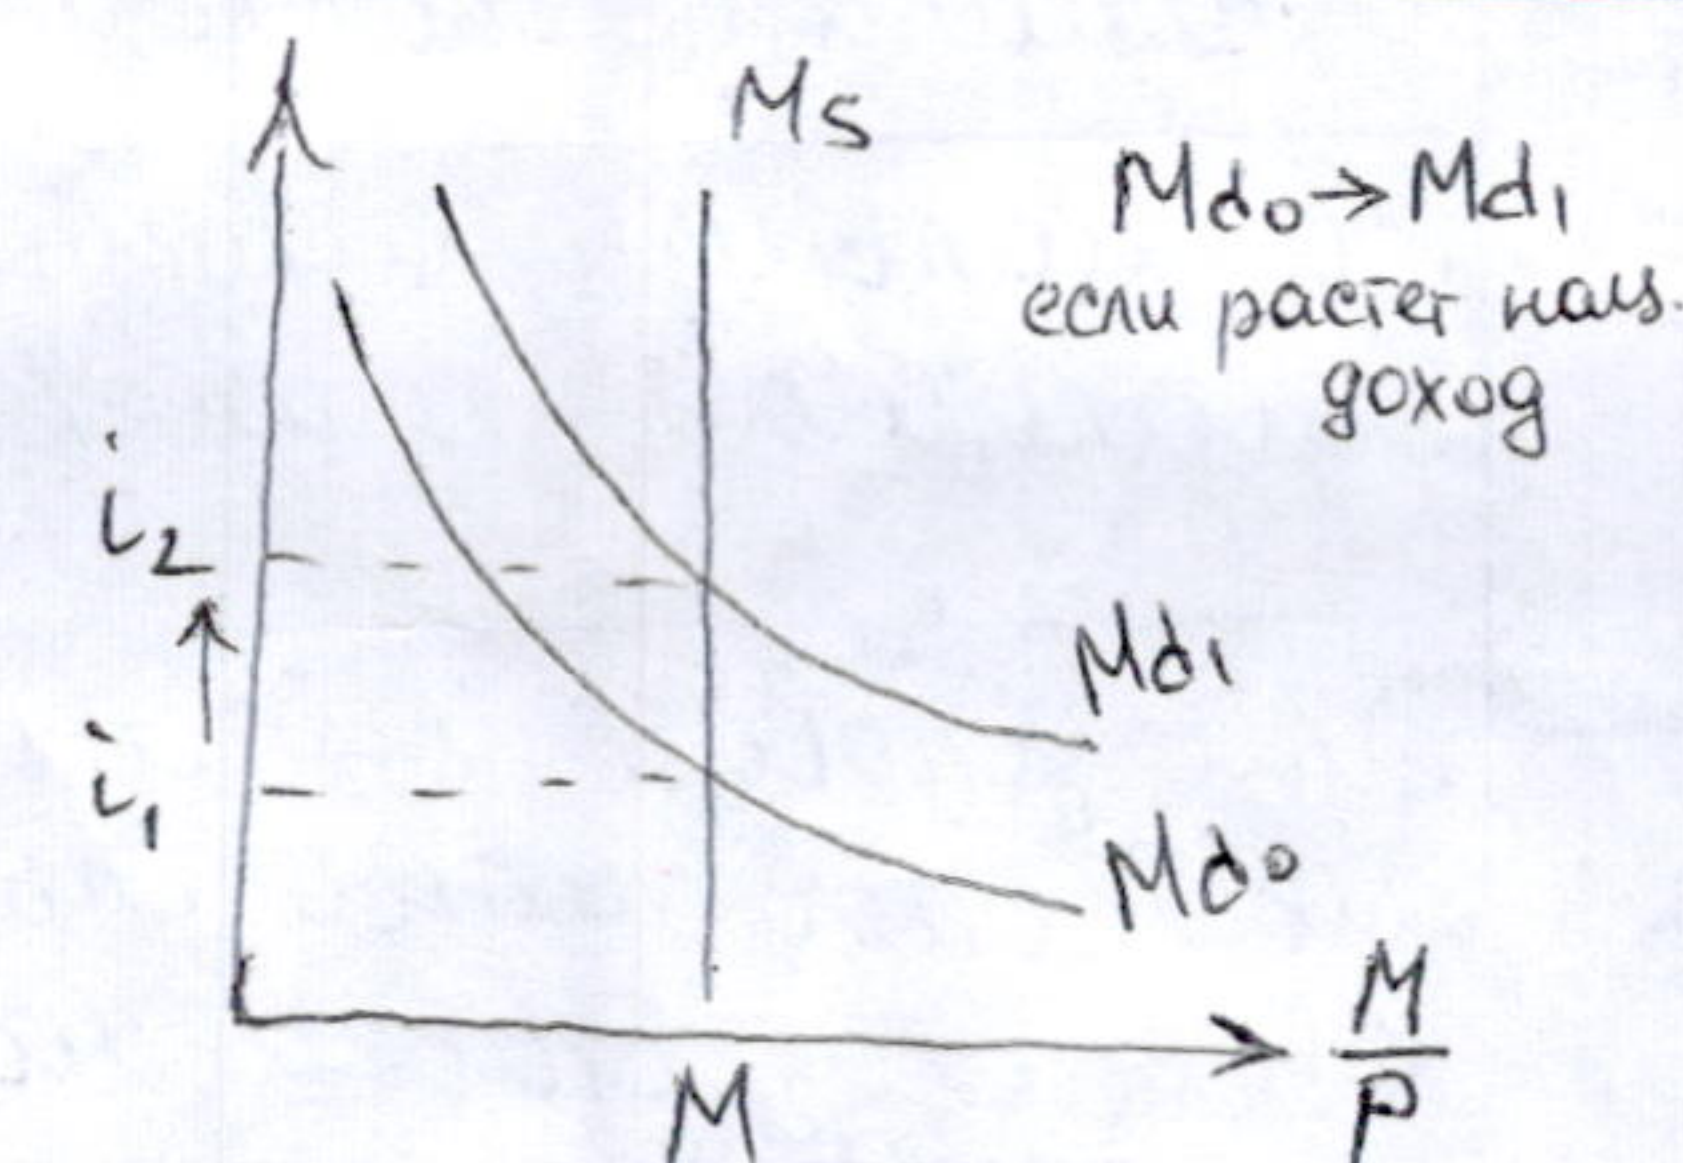 Ms
Md₀→Md₁
если растет нац.
доход
i₂
Md₁
i₁
Md₀
M
P
M